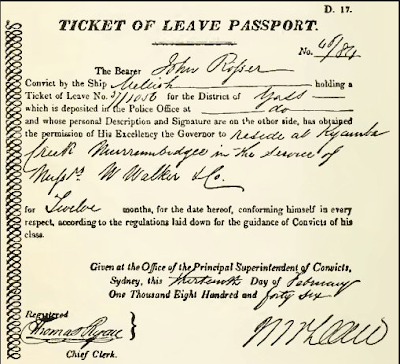 D. 17.
TICKET OF LEAVE PASSPORT.
No. 46/84
The Bearer John Rosser
Convict by the Ship Mellish holding a
Ticket of Leave No. 37/1056 for the District of Yass
which is deposited in the Police Office at do
and whose personal Description and Signature are on the other side, has obtained
the permission of His Excellency the Governor to reside at Kyamba
Creek Murrumbidgee in the service of
Messrs. W Walker & Co.
for Twelve months, for the date hereof, conforming himself in every
respect, according to the regulations laid down for the guidance of Convicts of his
class.
Given at the Office of the Principal Superintendent of Convicts,
Sydney, this thirteenth Day of February
One Thousand Eight Hundred and forty six
Registered
Thomas Ryan
Chief Clerk.